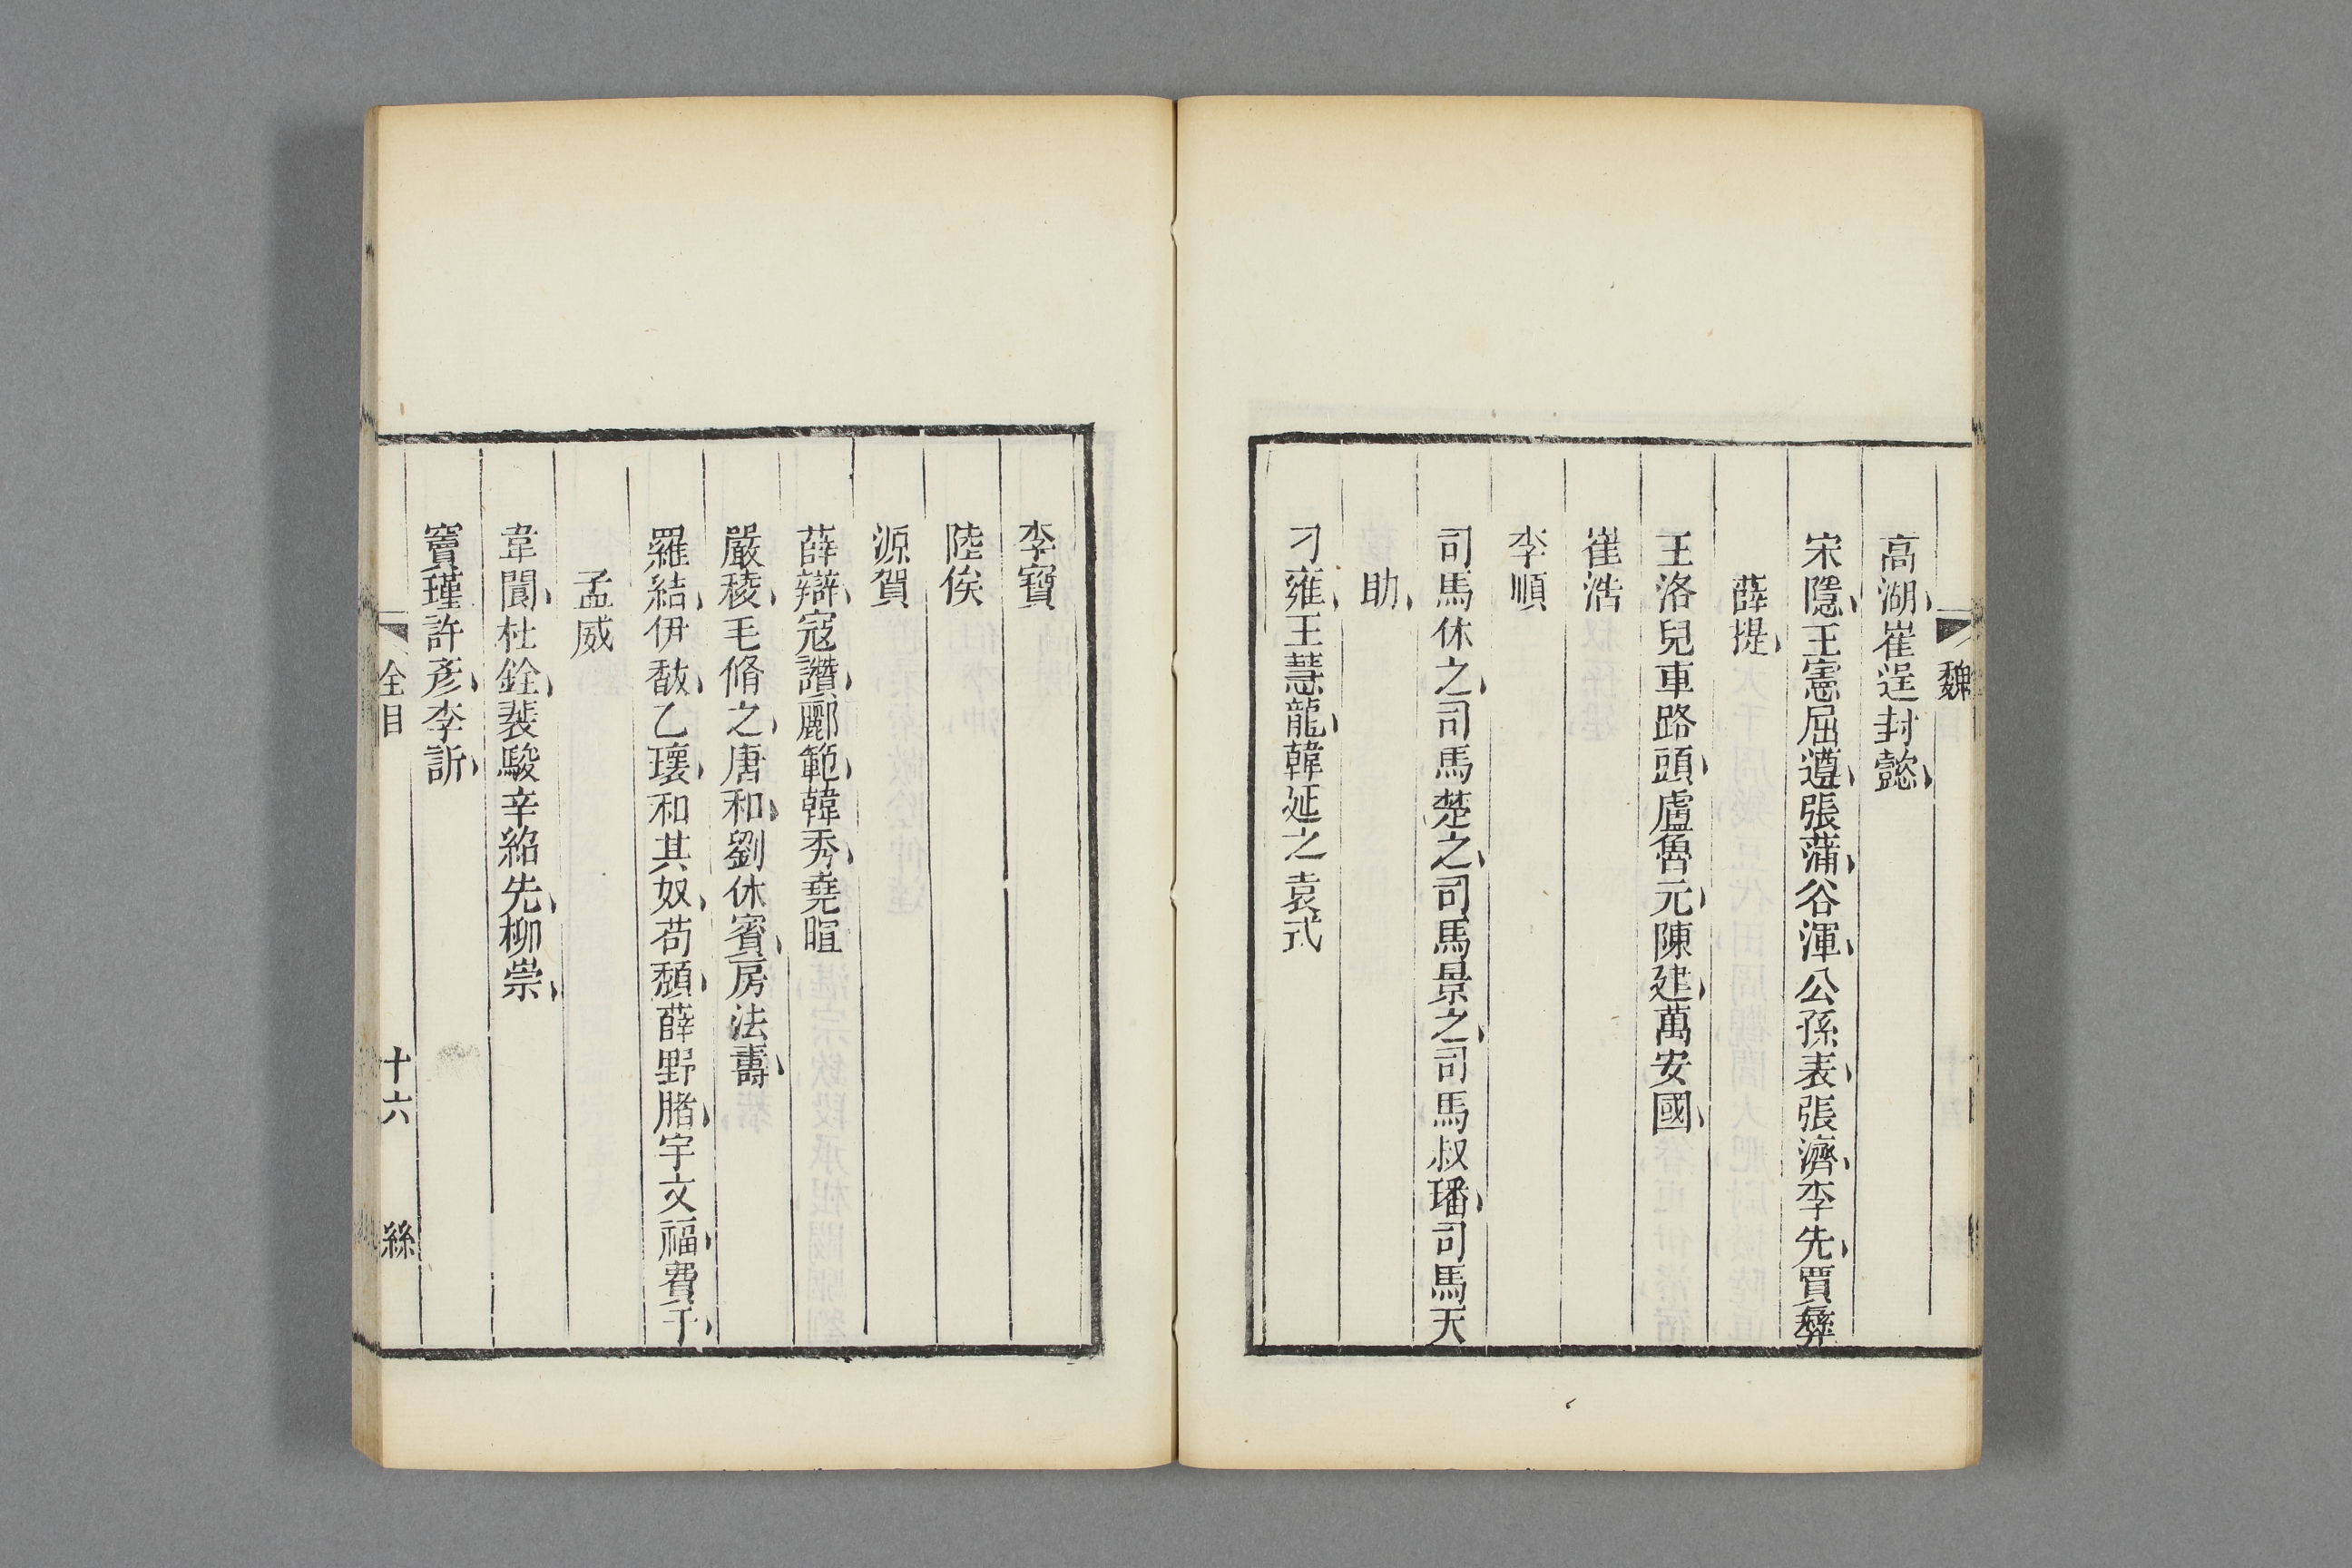 魏
高湖、崔逞封懿、
宋隱、王憲屈遵、張蒲、谷渾、公孫表、張濟、李先、賈彝
薛提、
王洛兒車路頭、盧魯元、陳建、萬安國、
崔浩
李順
司馬休之、司馬楚之、司馬景之、司馬叔璠、司馬天
助、
刁雍、王慧龍、韓延之袁式
李寶
陸俟
源賀
薛辯、寇讚、酈範、韓秀、堯暄
嚴稜、毛脩之、唐和、劉休賓、房法壽、
羅結、伊馛、乙瓌、和其奴、苟頽、薛野䐗、宇文福、費于、
孟威
韋閬、杜銓、裴駿辛紹先、柳崇、
竇瑾許彥、李訢、
全目
十六
絲